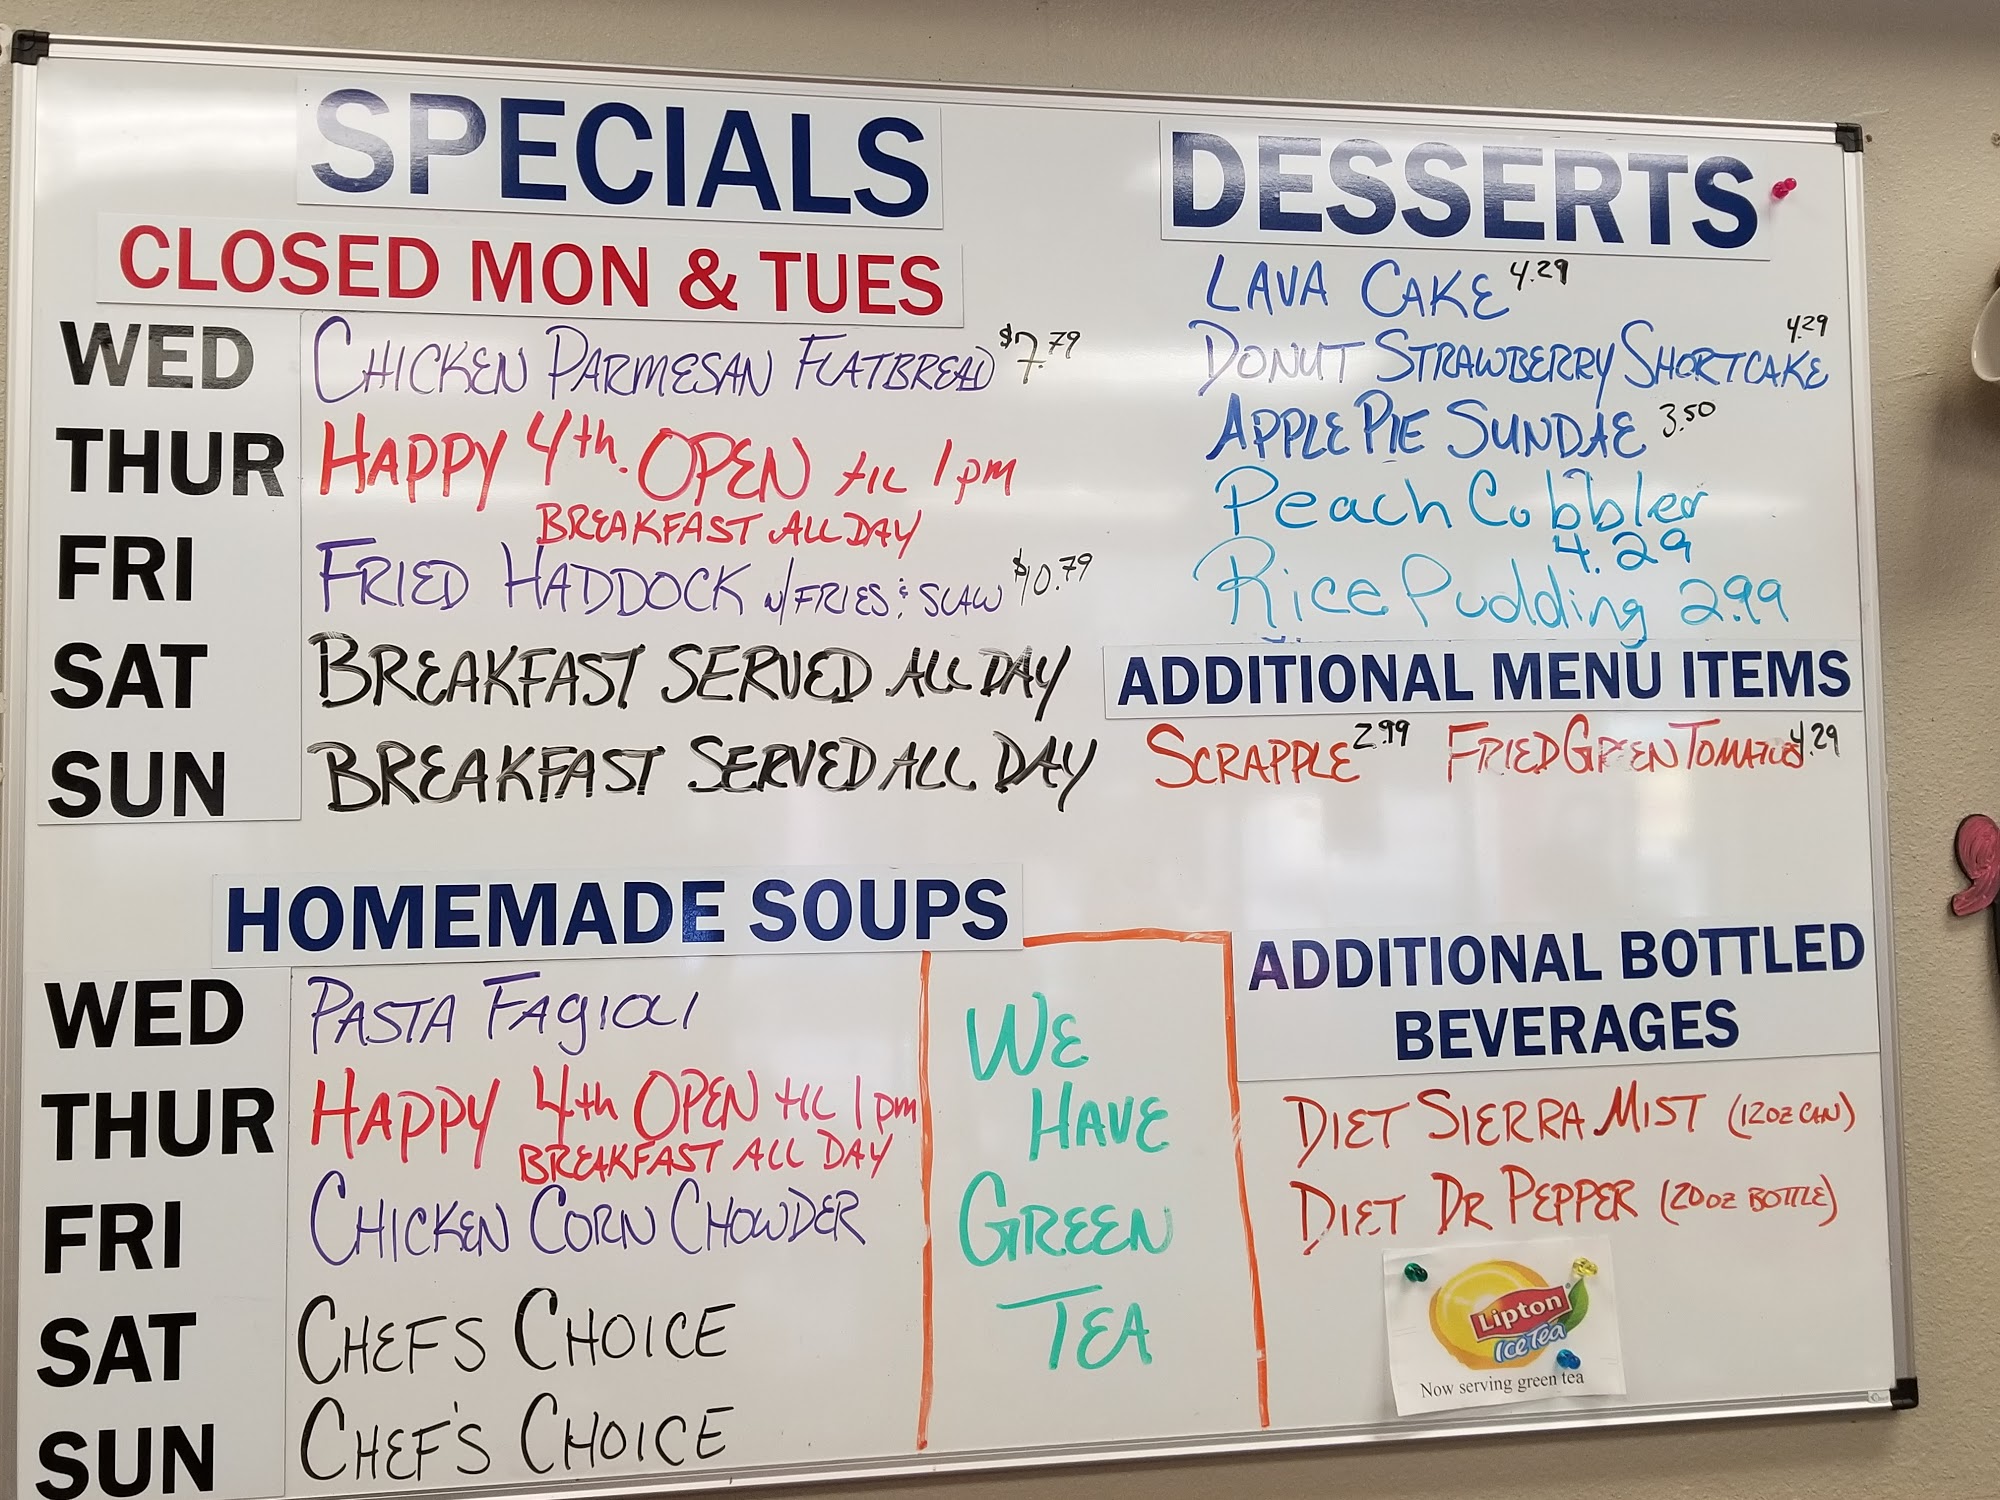 SPECIALS
CLOSED MON & TUES
WED CHICKEN PARMESAN FLATBREAD $7.79
THUR HAPPY 4th. OPEN TIL 1pm
BREAKFAST ALL DAY
FRI FRIED HADDOCK w/FRIES & SLAW $10.79
SAT BREAKFAST SERVED ALL DAY
SUN BREAKFAST SERVED ALL DAY
DESSERTS
LAVA CAKE 4.29
DONUT STRAWBERRY SHORTCAKE 4.29
APPLE PIE SUNDAE 3.50
Peach Cobbler
4.29
Rice Pudding 2.99
ADDITIONAL MENU ITEMS
SCRAPPLE 2.99 FRIED GREEN TOMATOES 4.29
HOMEMADE SOUPS
WED PASTA FAGIOLI
THUR HAPPY 4th OPEN TIL 1pm
BREAKFAST ALL DAY
FRI CHICKEN CORN CHOWDER
SAT CHEF'S CHOICE
SUN CHEF'S CHOICE
WE
HAVE
GREEN
TEA
ADDITIONAL BOTTLED
BEVERAGES
DIET SIERRA MIST (12oz CAN)
DIET DR PEPPER (20oz BOTTLE)
Lipton
Ice Tea
Now serving green tea